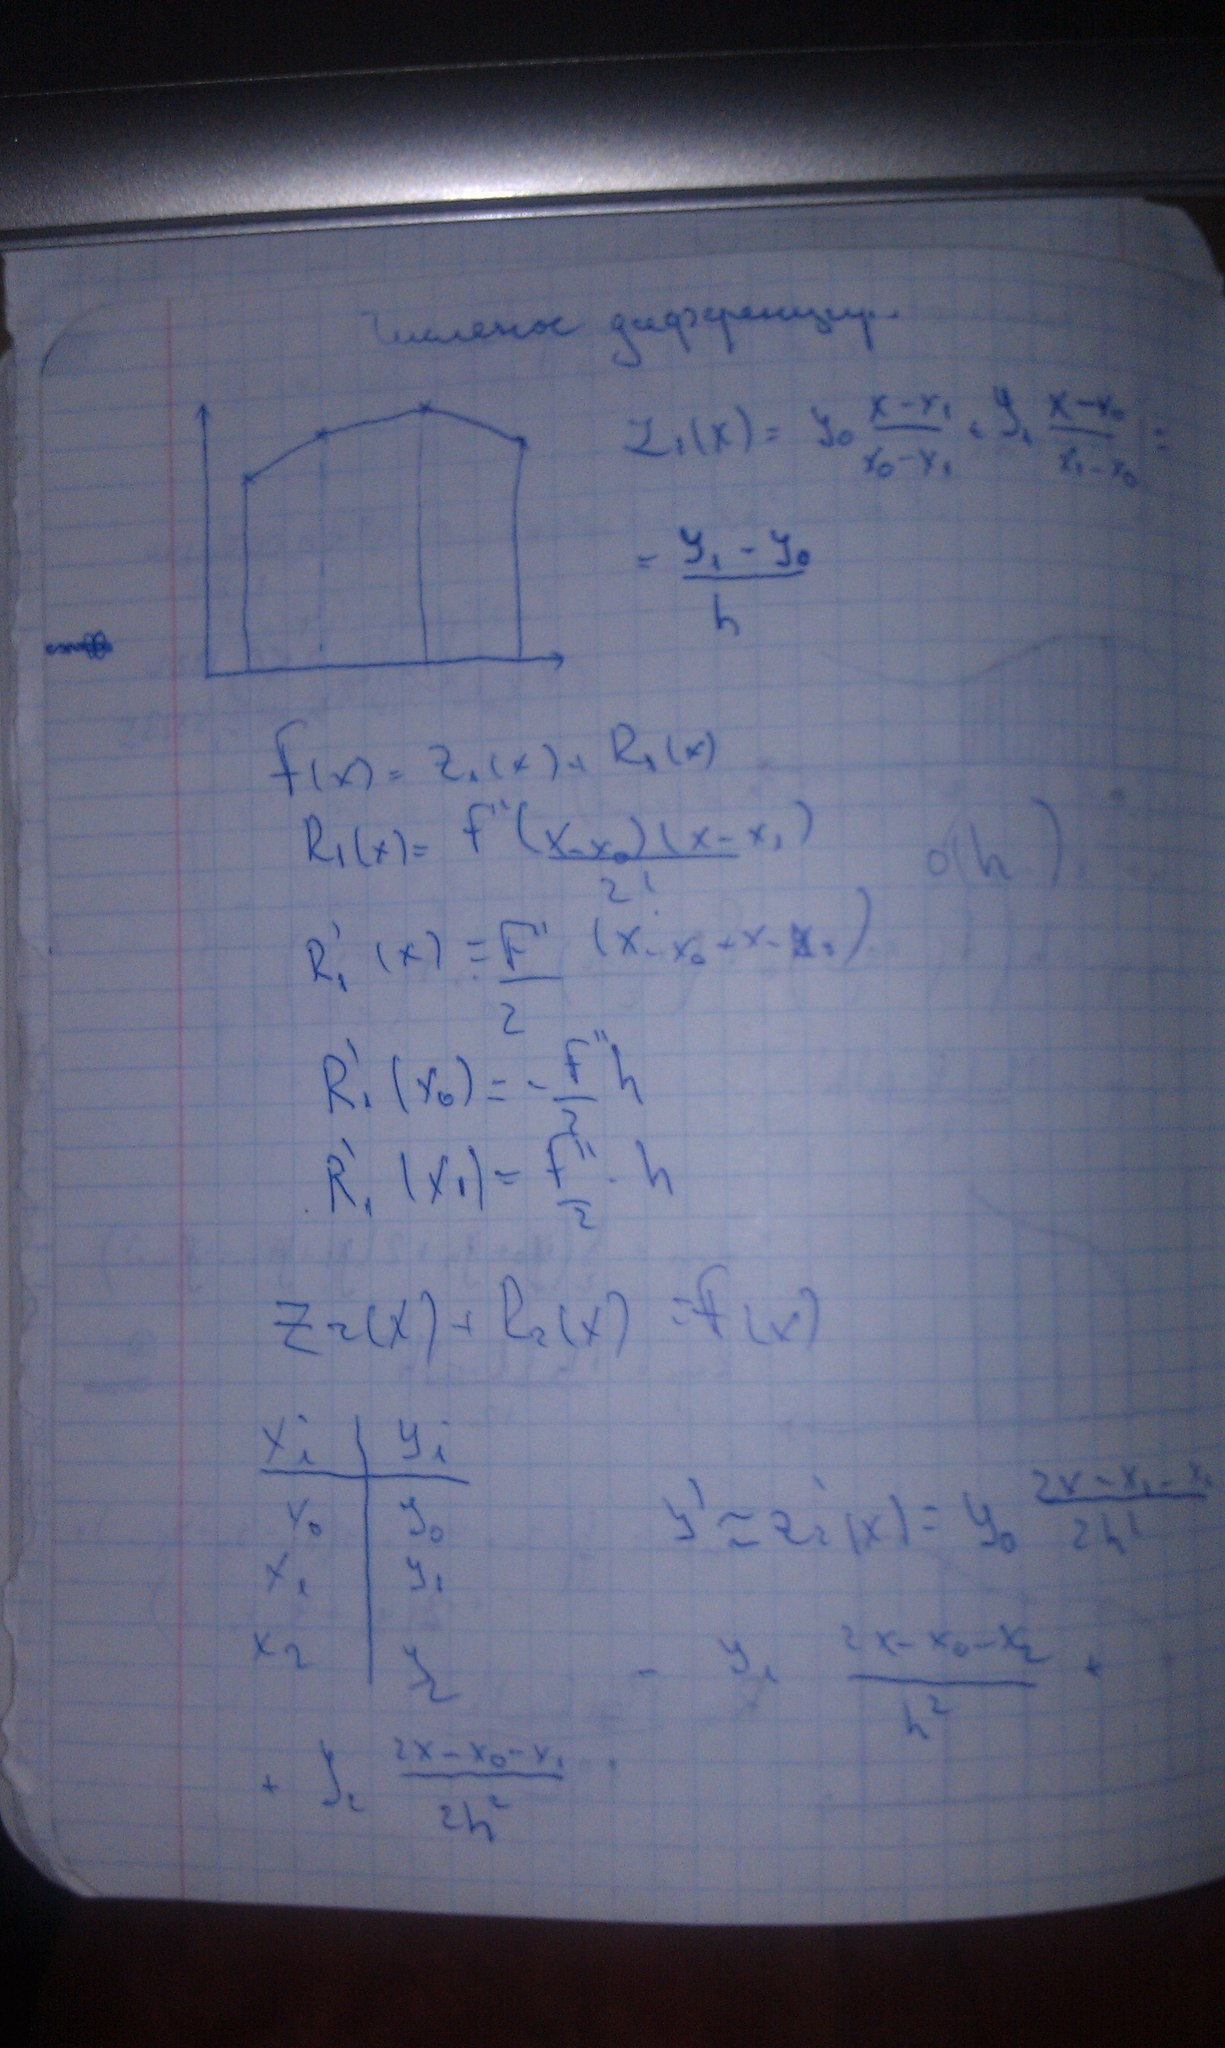 Численое дифференцир.
Z₁(x) = y₀ (x-x₁)/(x₀-x₁) + y₁ (x-x₀)/(x₁-x₀) =
= (y₁ - y₀)/h
f(x) = Z₁(x) + R₁(x)
R₁(x) = f''(x-x₀)(x-x₁)/2!
R₁'(x) = f''/2 (x-x₀+x-x₁)
R₁'(x₀) = - f''/2 h
R₁'(x₁) = f''/2 · h
Z₂(x) + R₂(x) = f(x)
xᵢ | yᵢ
x₀ | y₀
x₁ | y₁
x₂ | y₂
y' ≈ Z₂'(x) = y₀ (2x-x₁-x₂)/2h²
- y₁ (2x-x₀-x₂)/h² +
+ y₂ (2x-x₀-x₁)/2h²